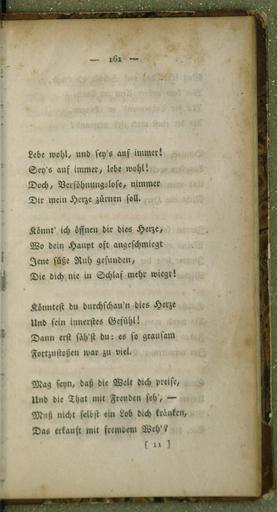 — 161 —
Lebe wohl, und sey's auf immer!
Sey's auf immer, lebe wohl!
Doch, Versöhnungslose, nimmer
Dir mein Herze zürnen soll.
Könnt' ich öffnen dir dies Herze,
Wo dein Haupt oft angeschmiegt
Jene süße Ruh gefunden,
Die dich nie in Schlaf mehr wiegt!
Könntest du durchschau'n dies Herze
Und sein innerstes Gefühl!
Dann erst säh'st du: es so grausam
Fortzustoßen war zu viel.
Mag seyn, daß die Welt dich preise,
Und die That mit Freuden seh', —
Muß nicht selbst ein Lob dich kränken,
Das erkauft mit fremdem Weh'?
[ 11 ]